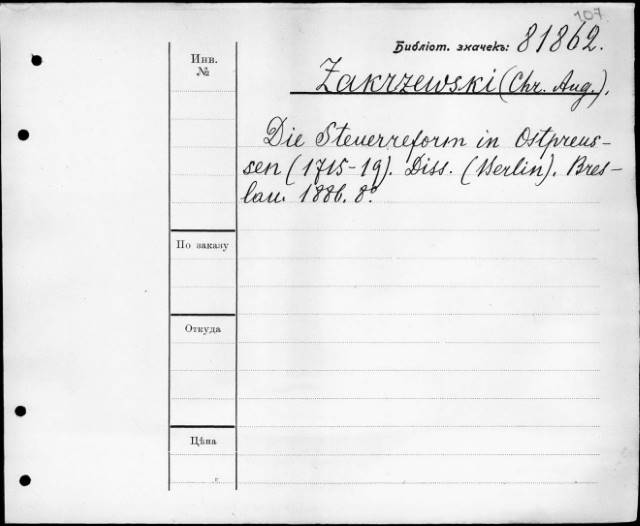 107
Библіот. значекъ: 81862.
Инв.
№
Zakrzewski (Chr. Aug.).
Die Steuerreform in Ostpreus-
sen (1715-19). Diss. (Berlin). Bres-
lau. 1886. 8º.
По заказу
Откуда
Цѣна